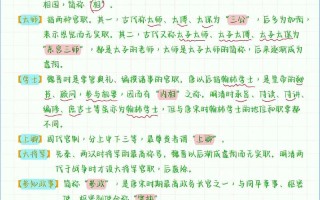 相国，简称“相”。
【太师】指两种官职。其一，古代称太师、太傅、太保为“三公”，后多为加衔，
表示恩宠而无实职。其二，古代称太子太师、太子太傅、太子太保为
“东宫三师”，都是太子的老师，太师是太子太师的简称，后来逐渐成为
虚衔。
【学士】魏晋时是掌管典礼、编撰诸事的官职。唐以后指翰林学士，是皇帝的秘
书、顾问，参与机要，因而有“内相”之称。明清时承旨、侍读、侍讲、
编修、庶吉士等虽亦为翰林学士，但与唐宋时翰林学士的地位和职掌都
不同。
【上卿】周代官制，分上中下三等，最尊贵者谓“上卿”。
【大将军】先秦、两汉时将军的最高称号。魏晋以后渐成虚衔而无实职。明清两
代于战争时才设大将军官职，后废除。
【参知政事】简称“参政”。是唐宋时期最高政务长官之一，与同平章事、枢密
使、枢密副使合称“宰执”。